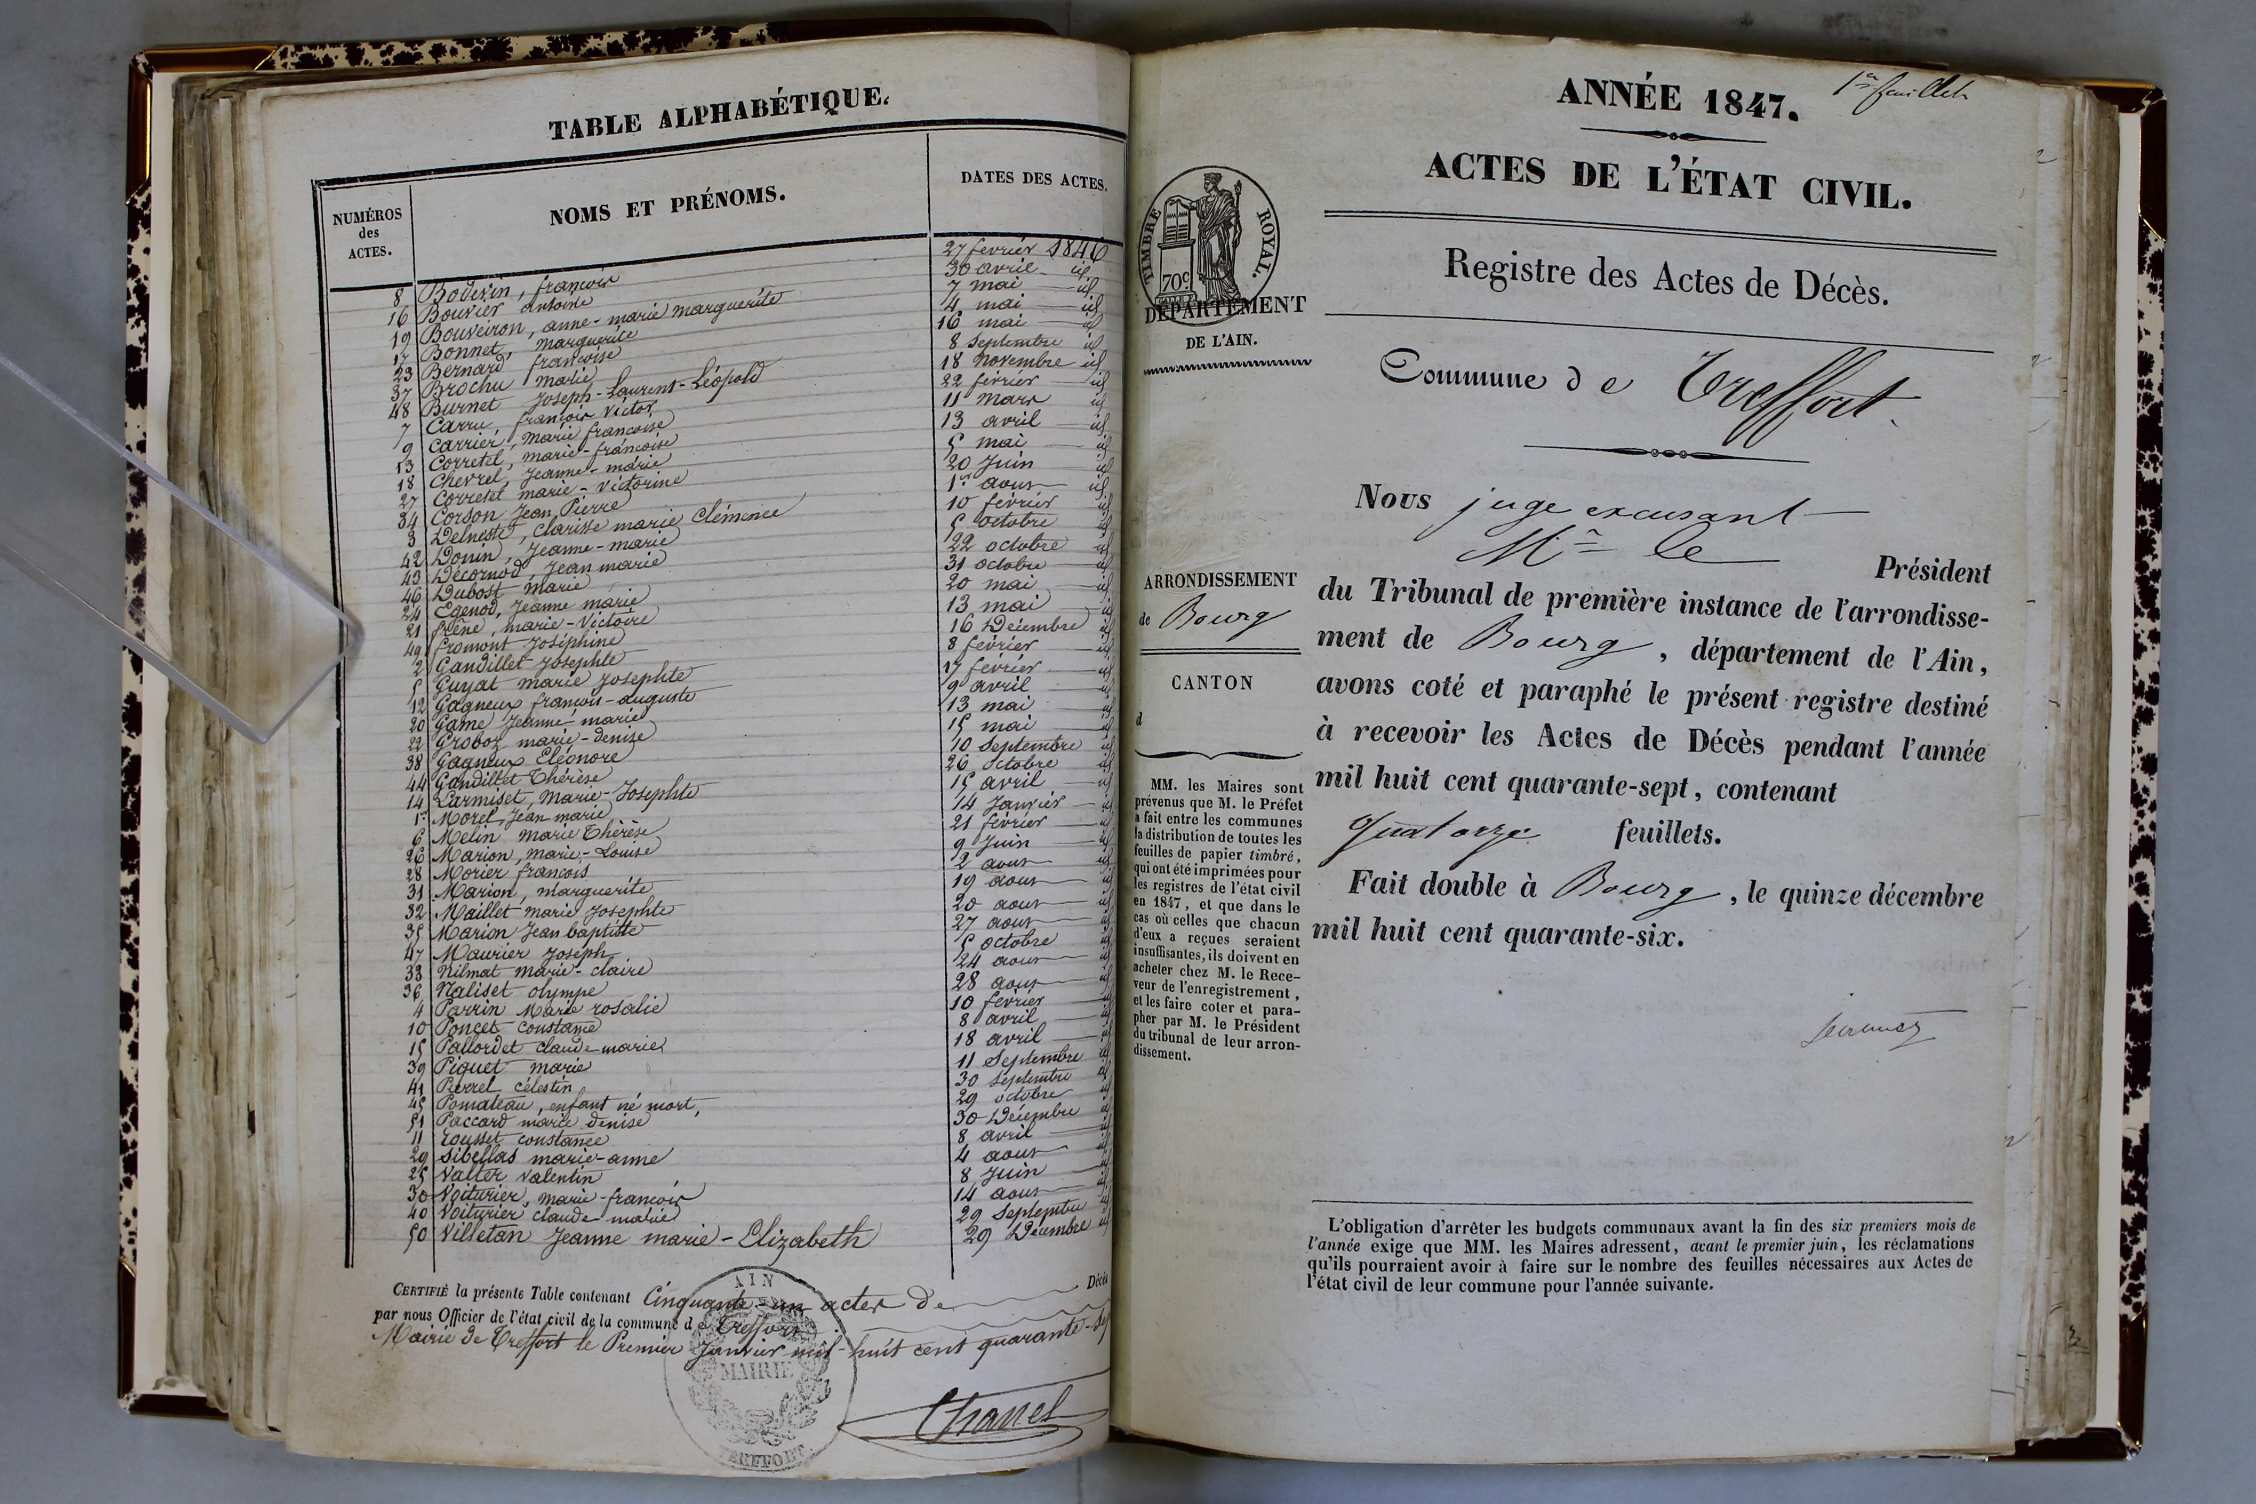 TABLE ALPHABÉTIQUE.
NUMÉROS des ACTES.
NOMS ET PRÉNOMS.
DATES DES ACTES.
8 Bodevin, françois 27 février 1846
16 Bouvier antoine 30 avril id
19 Bouveiron, anne-marie marguerite 7 mai id
17 Bonnet, marguerite 4 mai id
23 Bernard françoise 16 mai id
37 Brochu marie 8 Septembre id
48 Burnet Joseph-Laurent-Léopold 18 Novembre id
7 Carru, françois Victor 22 février id
9 Carrier, Marie françoise 11 Mars id
13 Corretel, marie-françoise 13 avril id
18 Chevrel, Jeanne-marie 5 mai id
27 Correset marie-Victorine 20 Juin id
34 Corson Jean Pierre 1er aout id
3 Delneste, Clarisse marie Clémence 10 février id
42 Donin, Jeanne-marie 5 octobre id
43 Décornod, Jean marie 22 octobre id
46 Dubost Marie 31 octobre id
24 Egenod, Jeanne marie 20 mai id
21 frêne, marie-Victoire 13 mai id
49 fromont Joséphine 16 Décembre id
2 Gandillet Josephte 8 février id
5 Guyat marie Josephte 17 février id
12 Gagneux françois-auguste 9 avril id
20 Game Jeanne marie 13 mai id
22 Groboz marie-denize 15 mai id
38 Gagneux Eléonore 10 Septembre id
44 Gandillet Thérèse 26 octobre id
14 Larmiset, Marie-Josephte 15 avril id
1er Morel, Jean marie 14 Janvier id
6 Melin marie Thérèse 21 février id
26 Marion, marie-Louise 9 Juin id
28 Morier françois 2 aout id
31 Marion, marguerite 19 aout id
32 Maillet marie Josephte 20 aout id
35 Marion Jean baptiste 27 aout id
47 Maurier Joseph 5 octobre id
33 Nilmat marie-claire 24 aout id
36 Naliset olympe 28 aout id
4 Parrin Marie rosalie 10 février id
10 Poncet constance 8 avril id
15 Pallordet claude-marie 18 avril id
39 Piquet marie 11 Septembre id
41 Pierrel célestin 30 Septembre id
45 Pomateau, enfant né mort, 29 octobre id
51 Paccard marie denise 30 Décembre id
11 rousset constance 8 avril id
29 Sibellas marie-anne 4 aout id
25 Valter Valentin 8 Juin id
30 Voiturier, marie-françois 14 aout id
40 Voiturier claude-marie 29 Septembre id
50 Villetan Jeanne marie-Elizabeth 29 Décembre id
CERTIFIÉ la présente Table contenant Cinquante-un actes de Décès
par nous Officier de l'état civil de la commune de Treffort
Mairie de Treffort le Premier Janvier mil-huit cent quarante-sept
AIN
MAIRIE
TREFFORT
Chanel
1er feuillet
ANNÉE 1847.
ACTES DE L'ÉTAT CIVIL.
TIMBRE ROYAL.
70c
DÉPARTEMENT
DE L'AIN.
Registre des Actes de Décès.
Commune de Treffort.
ARRONDISSEMENT
de Bourg
CANTON
d
MM. les Maires sont
prévenus que M. le Préfet
a fait entre les communes
la distribution de toutes les
feuilles de papier timbré,
qui ont été imprimées pour
les registres de l'état civil
en 1847, et que dans le
cas où celles que chacun
d'eux a reçues seraient
insuffisantes, ils doivent en
acheter chez M. le Rece-
veur de l'enregistrement,
et les faire coter et para-
pher par M. le Président
du tribunal de leur arron-
dissement.
Nous juge excusant
Mr le Président
du Tribunal de première instance de l'arrondisse-
ment de Bourg, département de l'Ain,
avons coté et paraphé le présent registre destiné
à recevoir les Actes de Décès pendant l'année
mil huit cent quarante-sept, contenant
Quatorze feuillets.
Fait double à Bourg, le quinze décembre
mil huit cent quarante-six.
L'obligation d'arrêter les budgets communaux avant la fin des six premiers mois de
l'année exige que MM. les Maires adressent, avant le premier juin, les réclamations
qu'ils pourraient avoir à faire sur le nombre des feuilles nécessaires aux Actes de
l'état civil de leur commune pour l'année suivante.